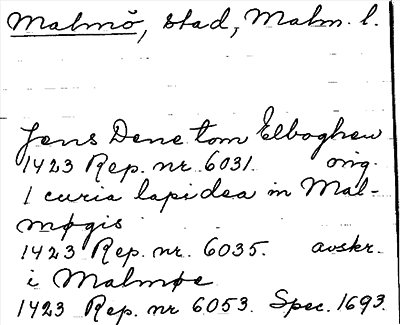 Malmö, stad, Malm. l.
Jens Dene tom Elboghen
1423 Rep. nr. 6031. orig.
1 curia lapidea in Mal-
møgis
1423 Rep. nr. 6035. avskr.
i Malmøe
1423 Rep. nr 6053. Spec. 1693.